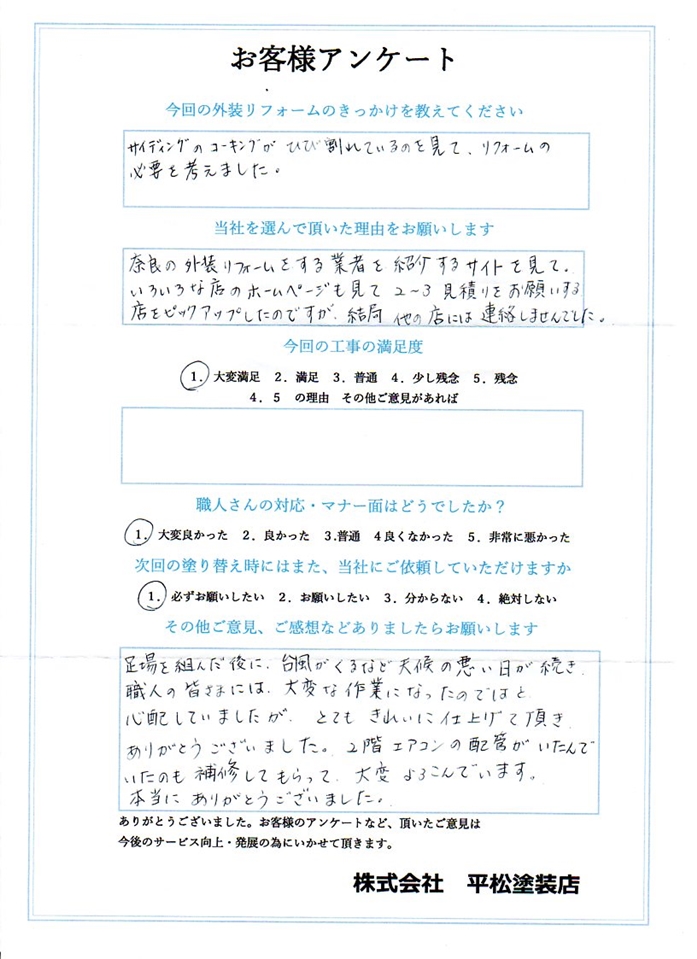 お客様アンケート
今回の外装リフォームのきっかけを教えてください
サイディングのコーキングがひび割れているのを見て、リフォームの
必要を考えました。
当社を選んで頂いた理由をお願いします
奈良の外装リフォームをする業者を紹介するサイトを見て。
いろいろな店のホームページも見て2~3見積りをお願いする
店をピックアップしたのですが、結局他の店には連絡しませんでした。
今回の工事の満足度
1. 大変満足 2. 満足 3. 普通 4. 少し残念 5. 残念
4. 5 の理由 その他ご意見があれば
職人さんの対応・マナー面はどうでしたか？
1. 大変良かった 2. 良かった 3.普通 4良くなかった 5. 非常に悪かった
次回の塗り替え時にはまた、当社にご依頼していただけますか
1. 必ずお願いしたい 2. お願いしたい 3. 分からない 4. 絶対しない
その他ご意見、ご感想などありましたらお願いします
足場を組んだ後に、台風がくるなど天候の悪い日が続き、
職人の皆さまには、大変な作業になったのではと
心配していましたが、とてもきれいに仕上げて頂き
ありがとうございました。2階エアコンの配管がいたんで
いたのも補修してもらって、大変よろこんでいます。
本当にありがとうございました。
ありがとうございました。お客様のアンケートなど、頂いたご意見は
今後のサービス向上・発展の為にいかせて頂きます。
株式会社 平松塗装店